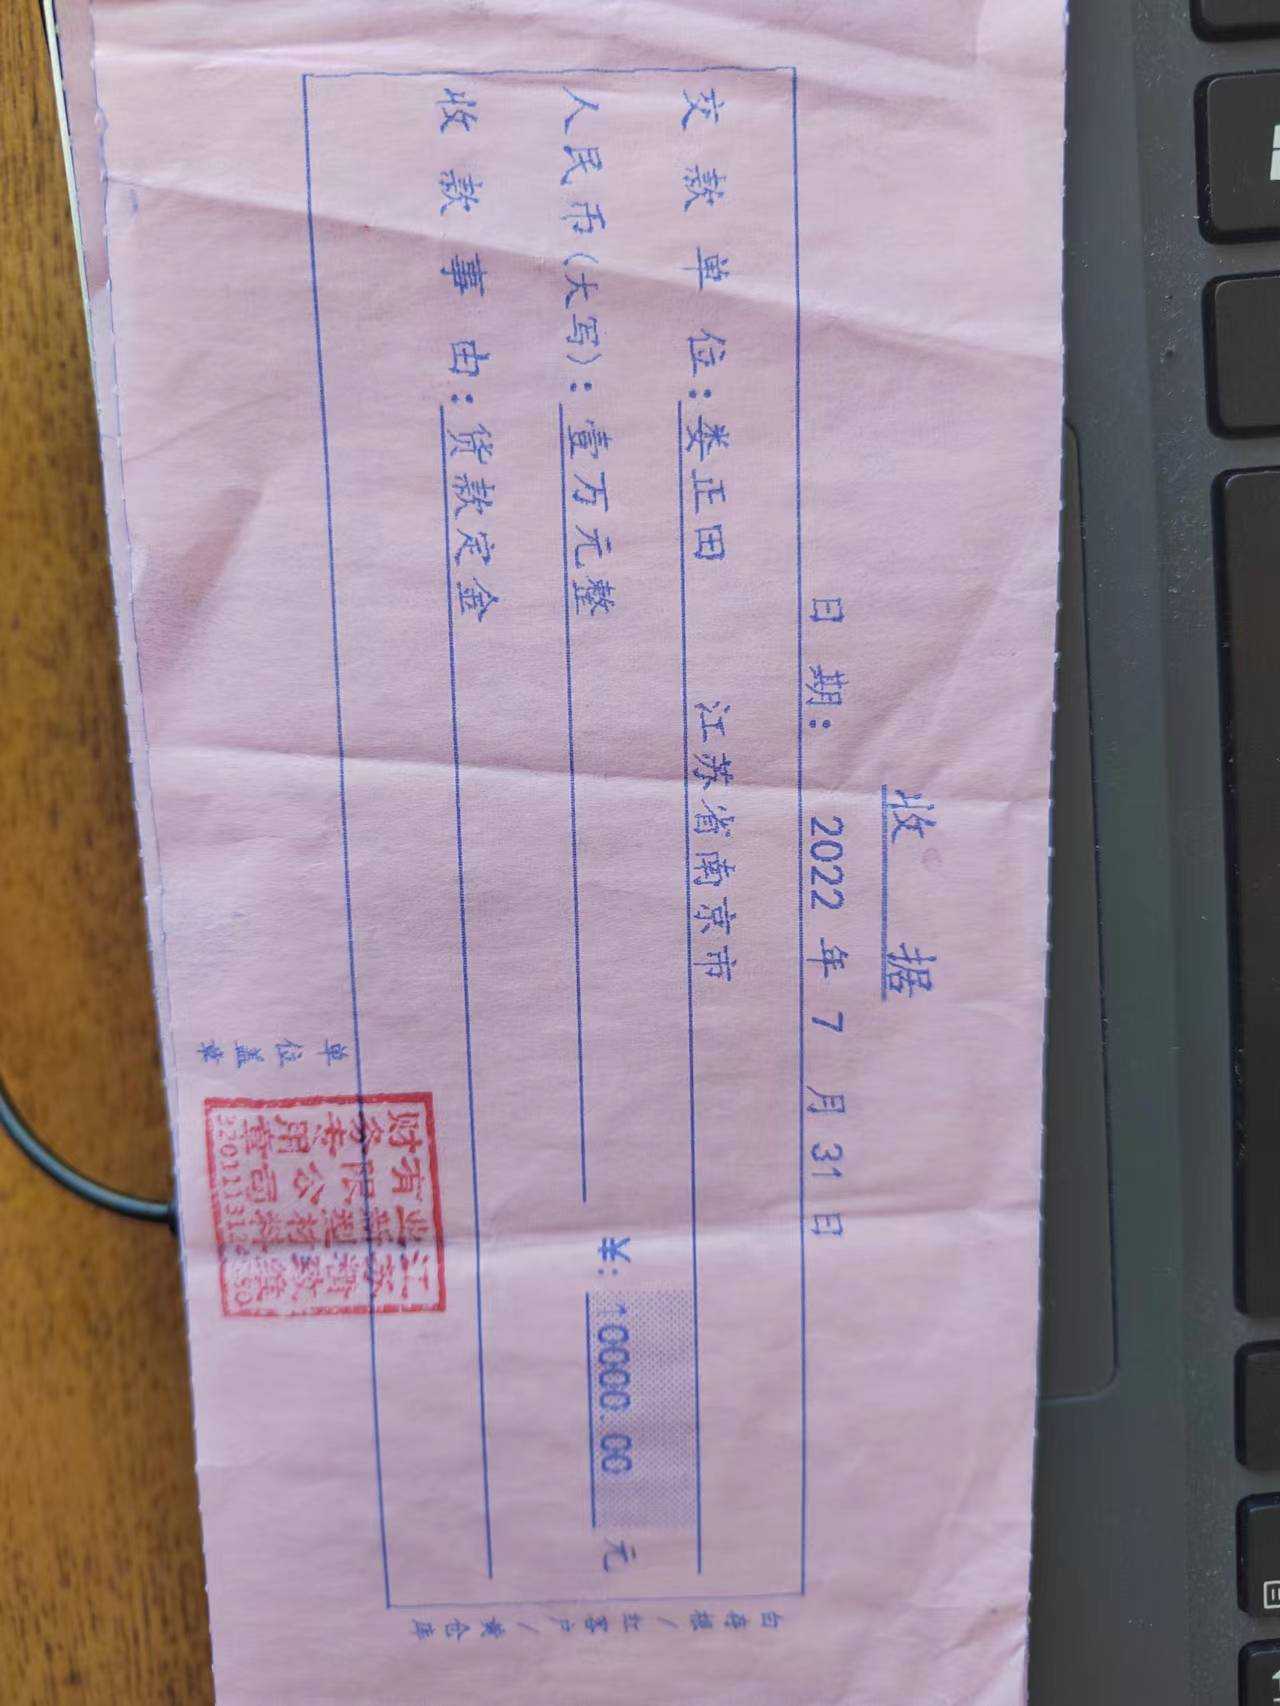 收 据
日 期: 2022 年 7 月 31 日
交 款 单 位: 娄正田 江苏省南京市
人民币(大写): 壹万元整 ¥: 10000.00 元
收 款 事 由: 货款定金
单 位 盖 章
有限公司
财务专用章
白存根 / 红客户 / 黄仓库